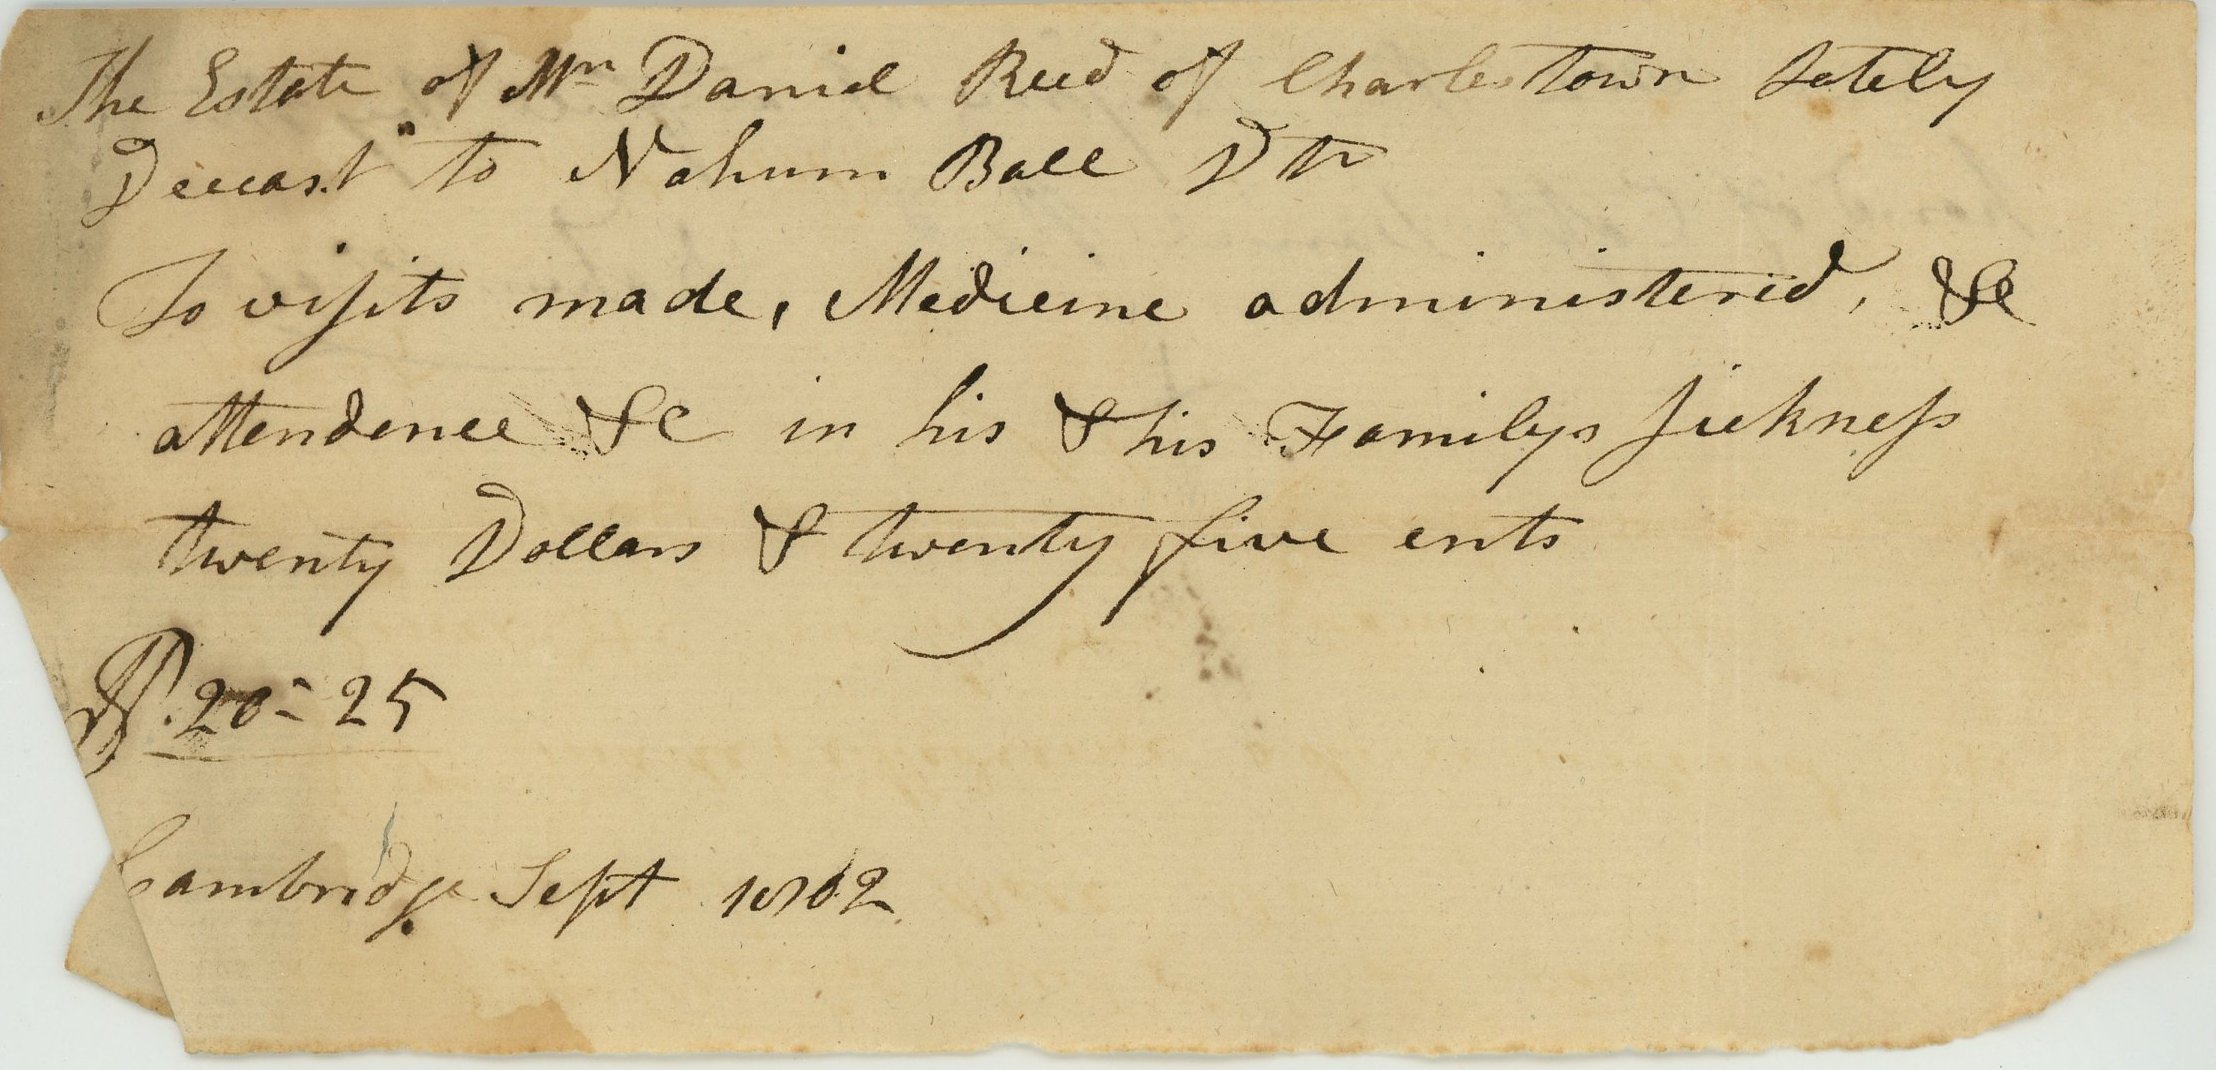 The Estate of Mr Daniel Reed of Charlestown lately
Deceast to Nahum Ball Dr
To visits made, Medicine administerid, &c
attendence &c in his & his Familys sickness
twenty Dollars & twenty five ents
D. 20=25
Cambridge Sept 1802